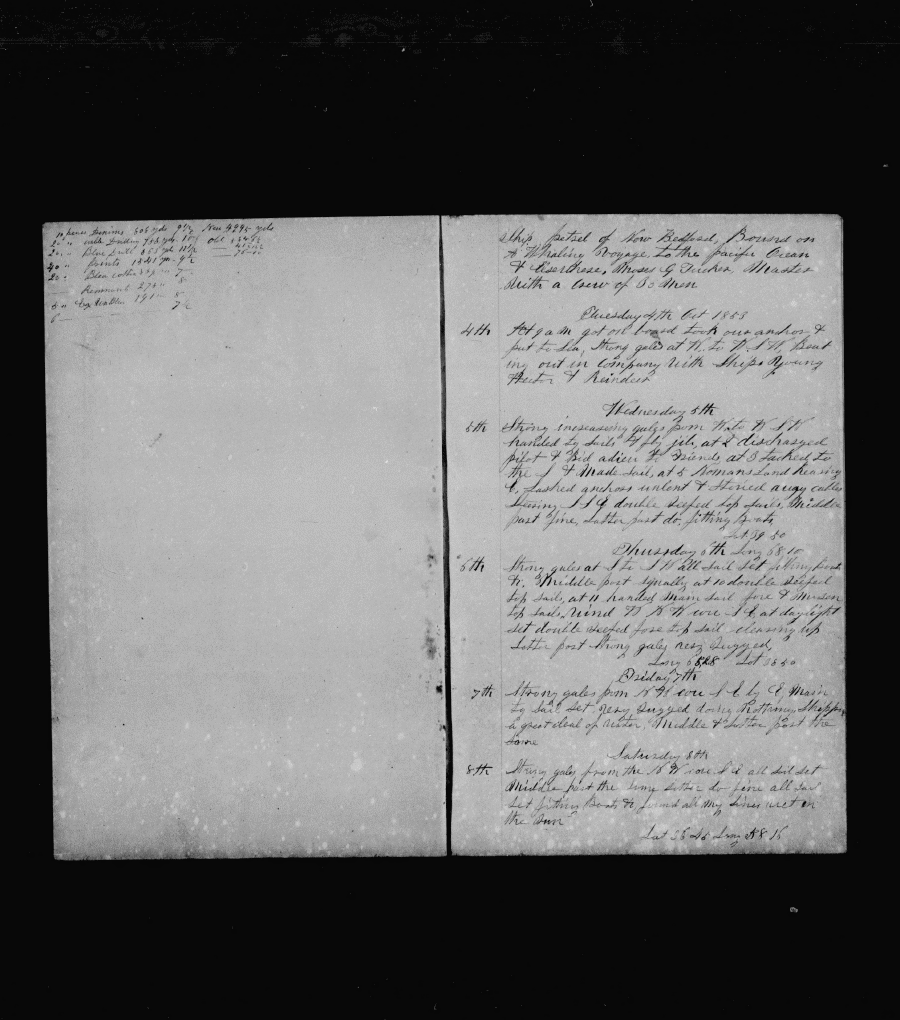 10 pieces Denims 305 yds 9 1/2 New 4295 yds
Drilling yds 10 Old
20 " Blue Drill 10 1/2
40 " Prints 1841 yds 9 1/2
20 " Blue cotton 7
Remnant 275 8
8
7 1/2
Ship petrel of New Bedford, Bound on
A Whaling Voyage to the pacific Ocean
& Elsewhere, Moses G Tucker, Master
With a Crew of 30 Men
Tuesday 4th Oct 1853
4th At 9 a m got on board took our anchor &
put to Sea, Strong gales at W. to W.S.W, Beat
ing out in Company With Ships Young
Hector & Reindeer
Wednesday 5th
5th Strong increasing gales from W to W S W
handed Sails & fly jib, at 2 discharged
pilot & Bid adieu to Friends, at 3 tacked to
the S & Made Sail, at 5 Nomans Land bearing
lashed anchors unbent & Stowed away cables
Steering S S E double Reefed top Sails, Middle
part fine, Latter part do, fitting Boats
Lat 39 50
Thursday 6th Long 68 10
6th Strong gales at S to S W all Sail Set fitting boats
&c. Middle part Squally, at 10 double Reefed
top Sails, at 11 handed Main Sail fore & Mizen
top Sails, Wind W N W cou S E, at daylight
Set double Reefed fore top Sail clearing up
Latter part Strong gales very Rugged,
Long Lat 38 50
Friday 7th
7th Strong gales from N W cou S E by E Main
top Sail Set Very Rugged doing Nothing Shipping
a great deal of Water, Middle & Latter part the
Same
Saturday 8th
8th Strong gales from the N W cou S E all Sail Set
Middle part the Same Latter do fine all Sail
Set fitting Boats &c, found all my lines wet in
the Run
Lat 36 45 Long 58 16